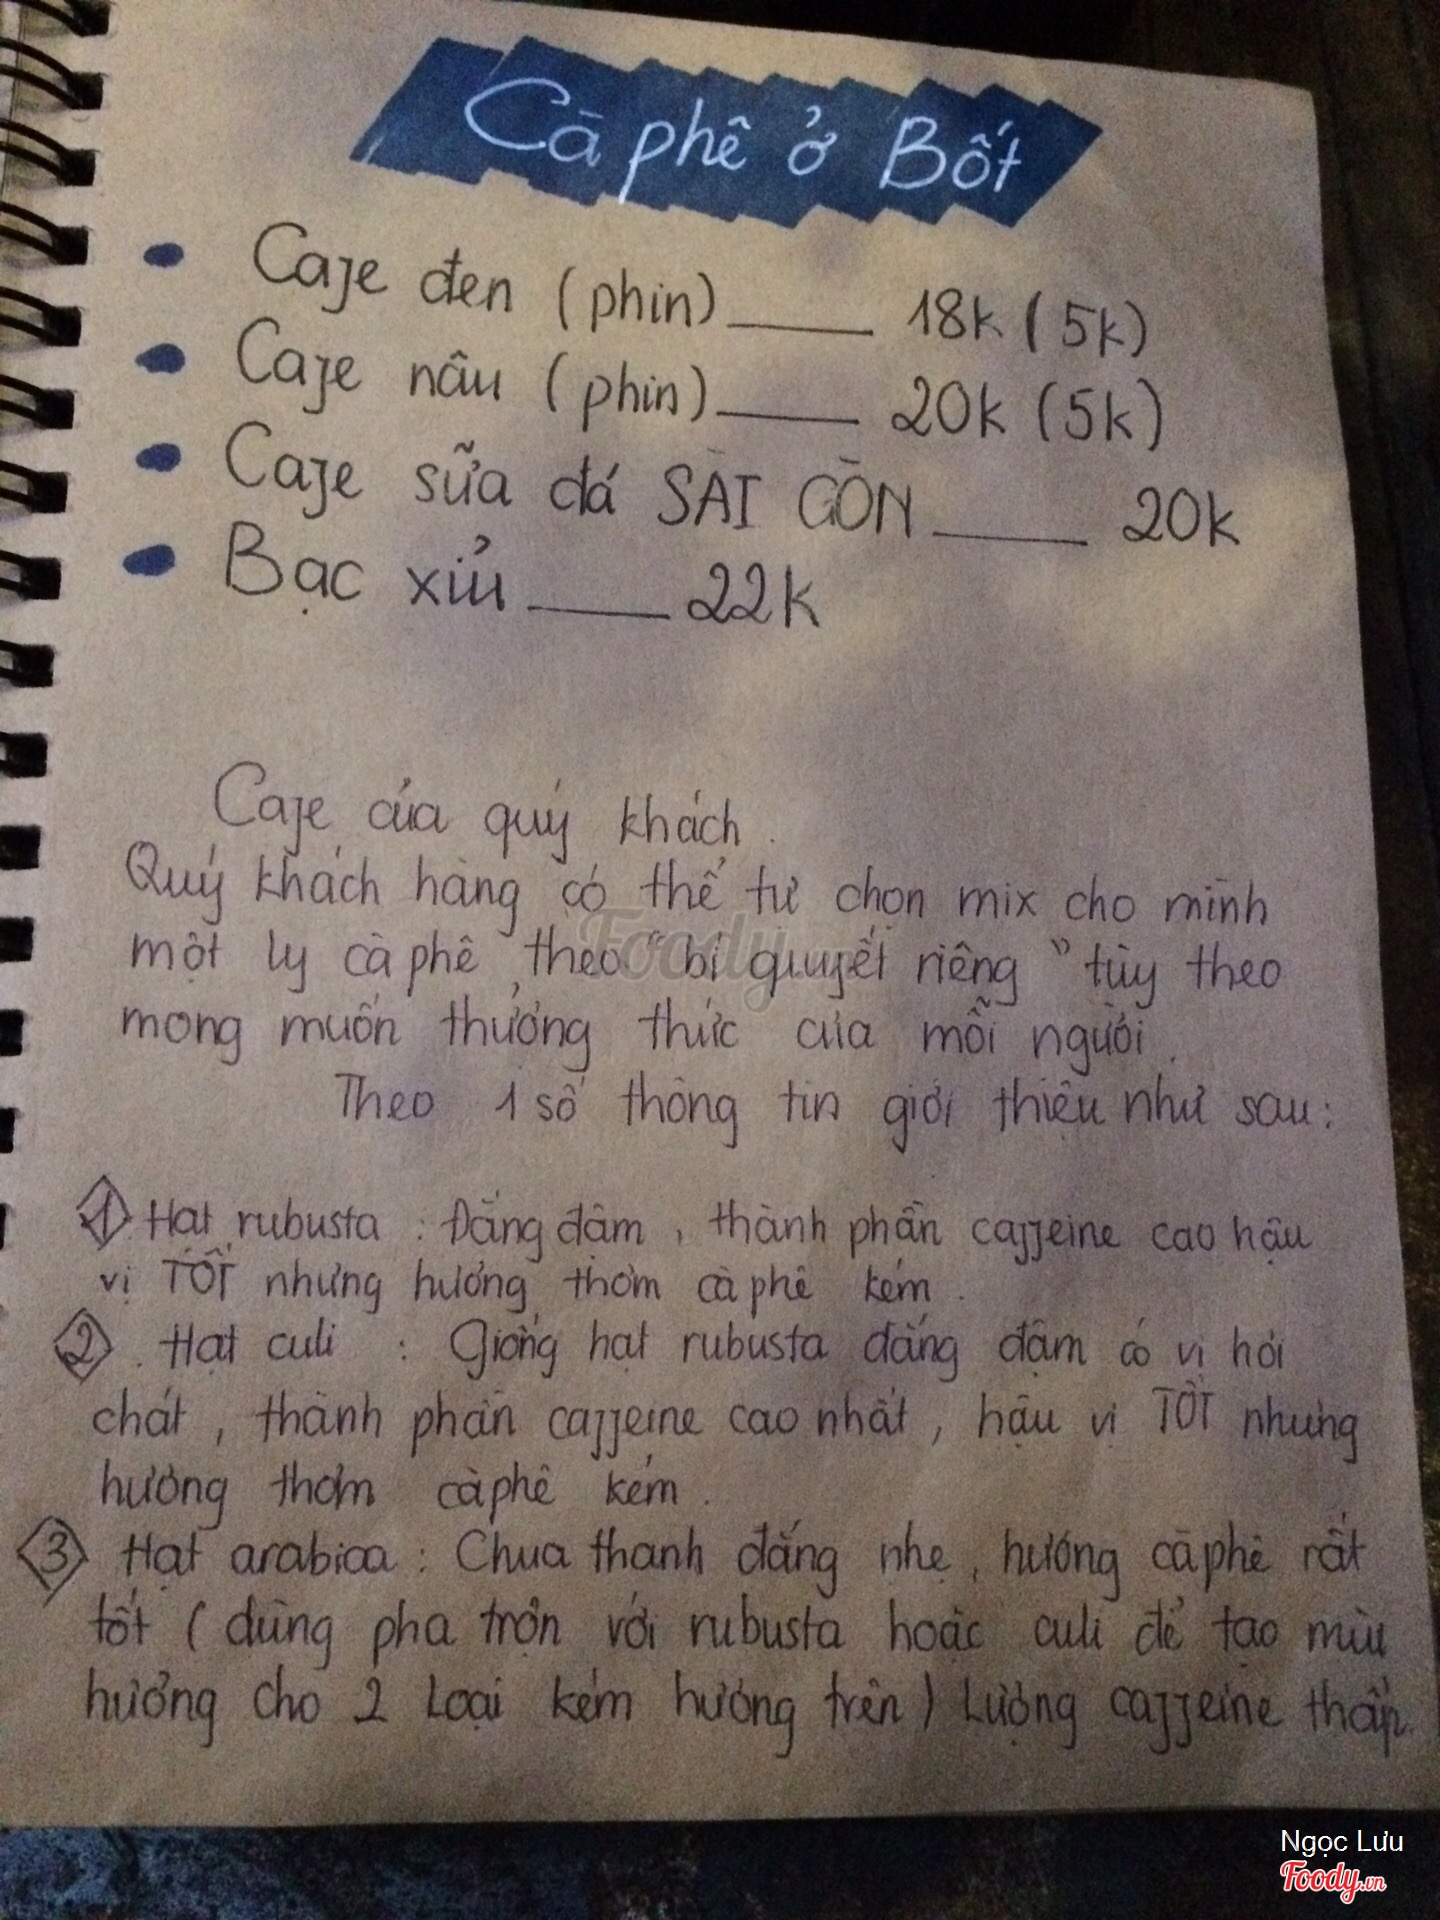 Cà phê ở Bốt
Cafe đen (phin) ____ 18k (5k)
Cafe nâu (phin) ____ 20k (5k)
Cafe sữa đá SÀI GÒN ____ 20k
Bạc xỉu ____ 22k
Cafe của quý khách.
Quý khách hàng có thể tự chọn mix cho mình
một ly cà phê theo "bí quyết riêng" tùy theo
mong muốn thưởng thức của mỗi người.
Theo 1 số thông tin giới thiệu như sau:
1 Hạt rubusta: Đắng đậm, thành phần caffeine cao hậu
vị TỐT nhưng hương thơm cà phê kém.
2. Hạt culi : Giống hạt rubusta đắng đậm có vị hơi
chát, thành phần caffeine cao nhất, hậu vị TỐT nhưng
hương thơm cà phê kém.
3 Hạt arabica: Chua thanh đắng nhẹ, hương cà phê rất
tốt (dùng pha trộn với rubusta hoặc culi để tạo mùi
hương cho 2 Loại kém hương trên) Lượng caffeine thấp.
Foody
Ngọc Lưu
Foody.vn